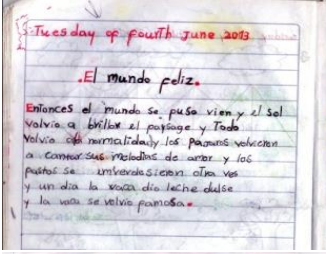 Tuesday of fourth June 2013
.El mundo feliz.
Entonces el mundo se puso vien y el sol
volvio a brillar el paysage y Todo
volvio a la normalidad y los pajaros volvieron
a cantar sus melodias de amor y los
pastos se enverdesieron otra ves
y un dia la vaca dio leche dulse
y la vaca se volvio famosa.